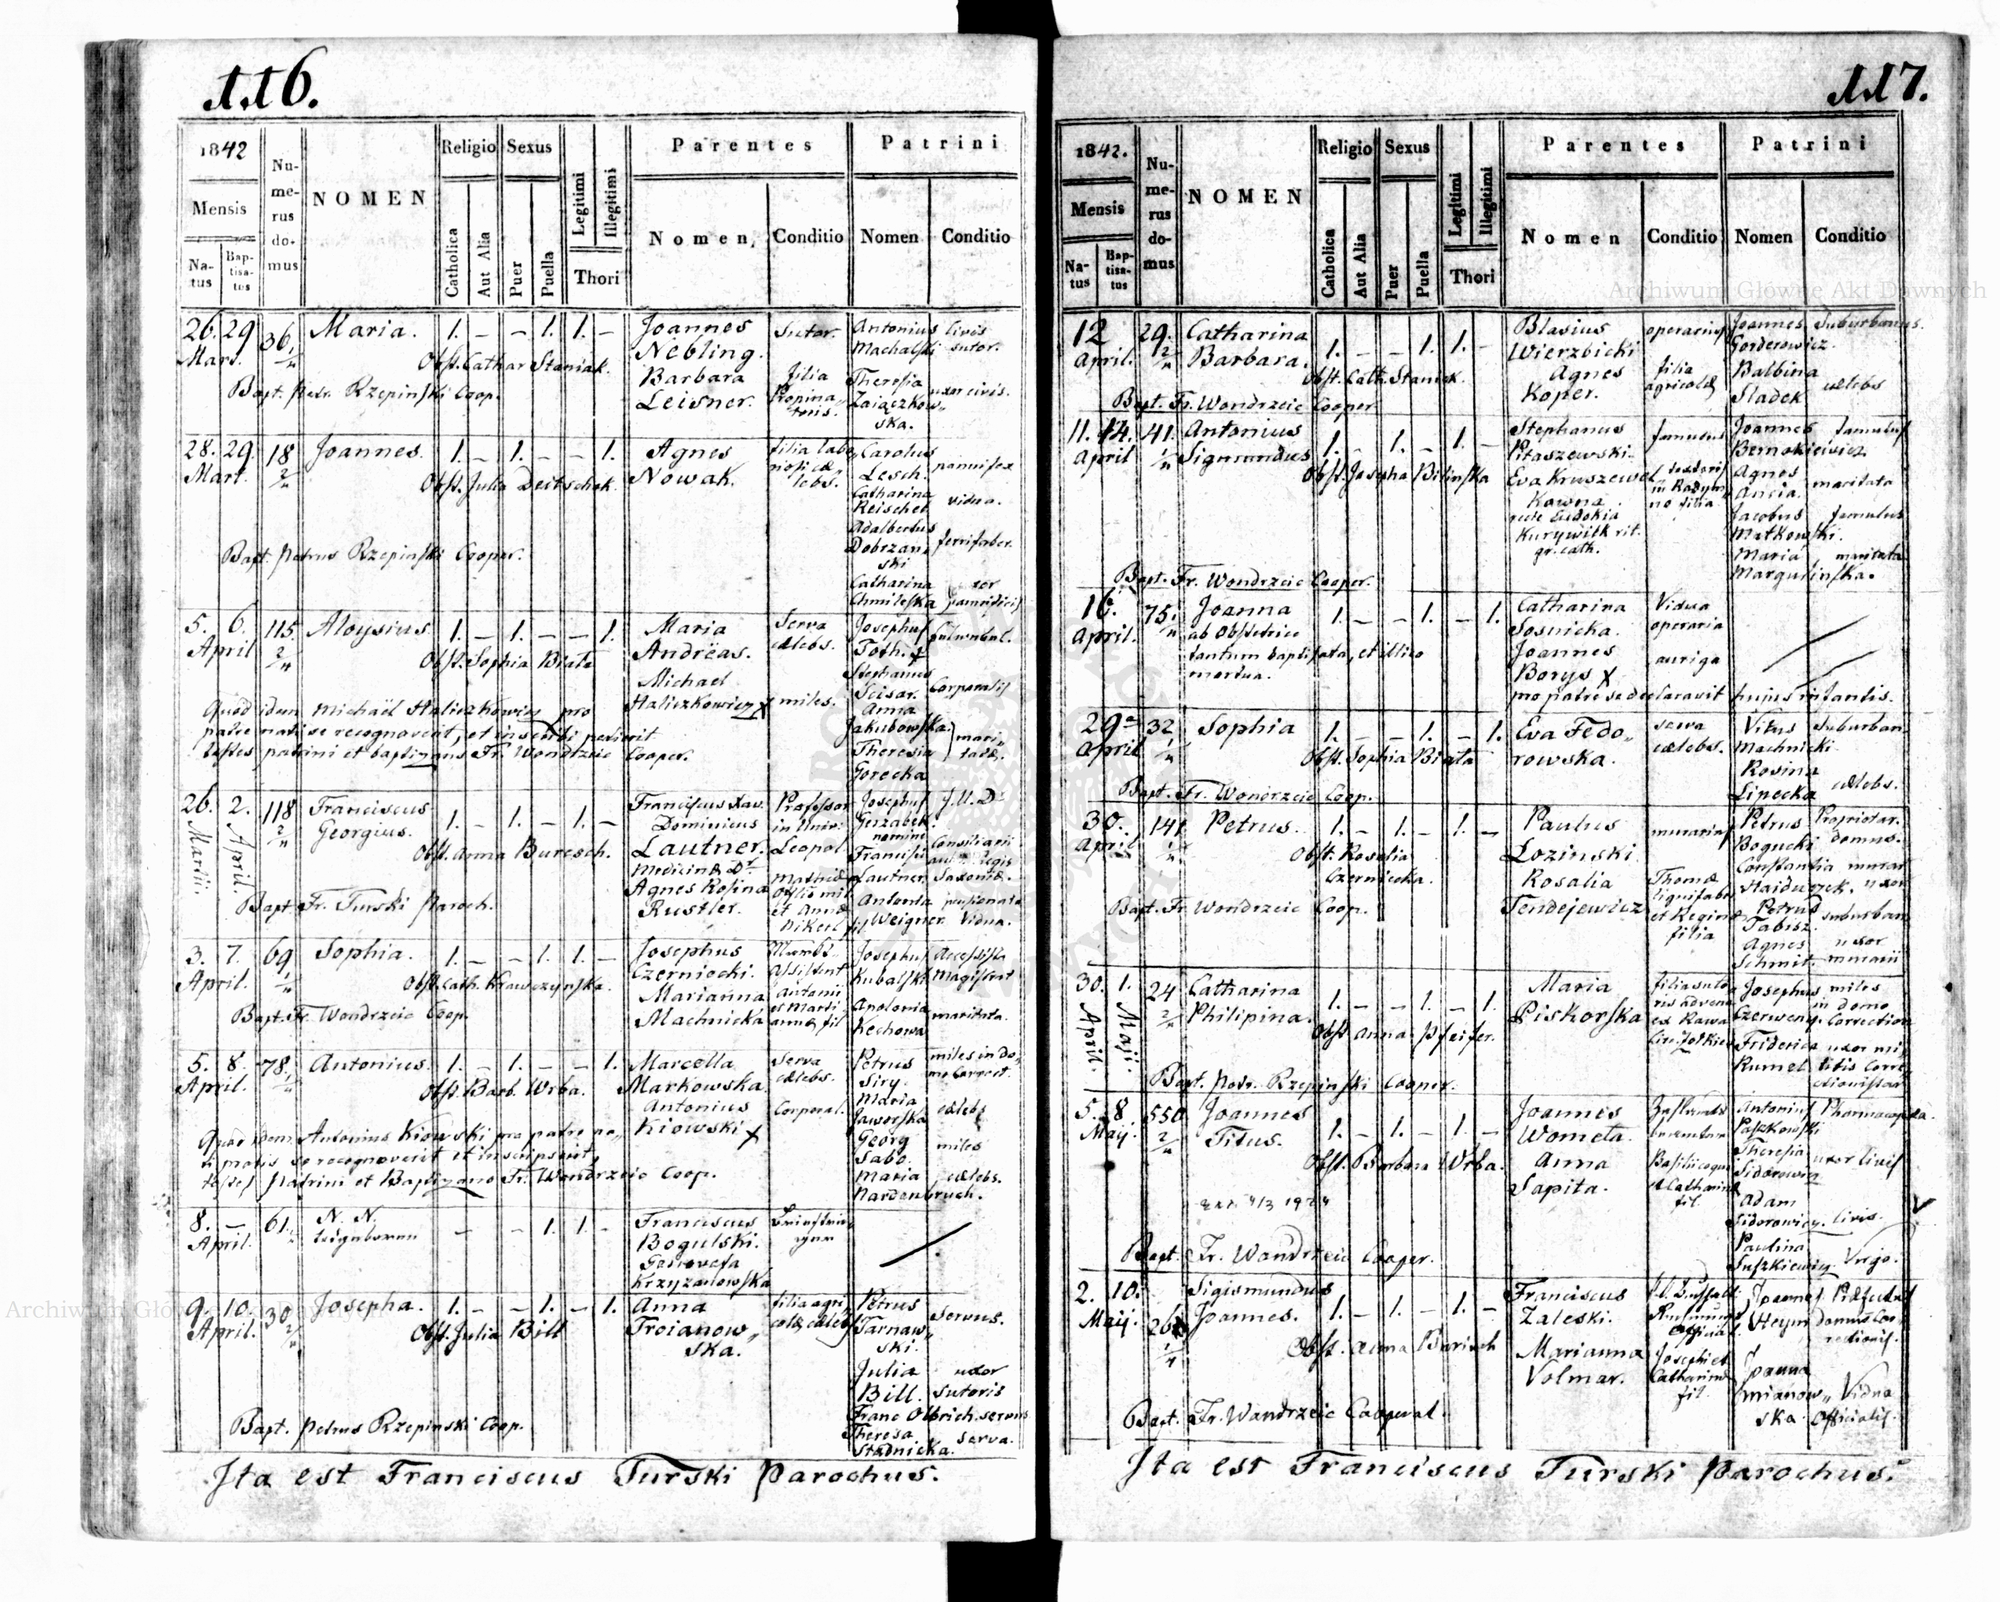 116.
1842
Mensis
Na-
tus
Bap-
tisa-
tus
Nu-
me-
rus
do-
mus
NOMEN
Religio
Catholica
Aut Alia
Sexus
Puer
Puella
Legitimi
Illegitimi
Thori
Parentes
Nomen,
Conditio
Patrini
Nomen
Conditio
26. 29 36. Maria. 1. – – 1. 1. – Joannes Sutor. Antonius Civis
Mart. Nebling. Machalski sutor.
Obst. Cathar Staniak.
Barbara filia Theresia uxor civis.
Bapt. Petr. Rzepinski Coop. Leisner. Propina- Zaiączkow-
toris. ska.
28. 29. 18 Joannes. 1. – 1. – – 1. Agnes filia Carolus
Mart. 2 Nowak. Lesch. pannifex
Obst. Julia Deitschek
Catharina vidua.
Reischel
Adalbertus
Dobrzan- ferrifaber.
ski
Bapt. Petrus Rzepinski Cooper.
Catharina
5. 6. 115 Aloysius 1. – 1. – – 1. Maria Serva Josephus
April 2 Andreas. cælebs. Toth. x
Obst. Sophia Biała
Michael Stephanus
Haliczkowicz x miles. Scisar. Corporalis
Quod idem Michaël Haliczkowicz pro Anna
patre nati se recognovent, et inscribi petierit Jakubowska mari-
testes patrini et baptizans Fr. Wondrzeic Cooper. Theresia tatæ.
Gorecka
26. 2. 118 Franciscus 1. – 1. – 1. – Franciscus Xav. Professor Josephus J. U. Dr
Martii April 2 Georgius. Dominicus in Univ: Gerzabek
Obst. Anna Buresch. Lautner. Leopol. nomine
Medicinæ Dr Francisci Consiliarii
Agnes Rosina Lautner Saxoniæ.
Rustler. et Annæ Antonia
Bapt. Fr. Turski Paroch. Weigner Vidua.
3. 7. 69 Sophia. 1. – – 1. 1. – Josephus Josephus Accessista
April. 1 Czerniecki. Assistent Kubalski Magistrat
Obst. Cath. Krawczynska.
Marianna Antonii Apolonia maritata.
Bapt. Fr. Wondrzeic Coop. Machnicka Kechowa
5. 8. 78. Antonius. 1. – 1. – – 1. Marcella Serva Petrus miles in do-
April. Markowska cælebs. Siry.
Obst. Barb. Wrba.
Antonius Corporal. Maria cælebs
Kiowski x Jaworska
Quod idem Antonius Kiowski pro patre na- Georg miles
ti prolis se recognoverit et inscripserit, Sabo.
testes patrini et Baptizans Fr. Wondrzeic Coop. Maria cælebs.
Nardenbruch.
8. – 61. N. N. – – 1. 1. – Franciscus
April. Bogulski.
Genovefa
Krzyzanowska
9. 10. 30. Josepha. 1. – – 1. – 1. Anna filia agri- Petrus Servus.
April. 2 Troianow- colæ cælebs Tarnaw-
Obst. Julia Bill ska. ski.
Julia uxor
Bill. Sutoris
Franc Olbrich servus
Bapt. Petrus Rzepinski Coop. Theresa serva.
Stadnicka.
Ita est Franciscus Turski Parochus.
117.
1842.
Mensis
Na-
tus
Bap-
tisa-
tus
Nu-
me-
rus
do-
mus
NOMEN
Religio
Catholica
Aut Alia
Sexus
Puer
Puella
Legitimi
Illegitimi
Thori
Parentes
Nomen
Conditio
Patrini
Nomen
Conditio
12 29. Catharina 1. – – 1. 1. – Blasius operarius Joannes Suburbanus.
April. 2 Barbara. Wierzbicki Gorderowicz.
Obst. Cath. Staniek.
Agnes filia Balbina cælebs
Koper. agricolæ Sladek
Bapt. Fr. Wondrzeic Cooper.
11. 14. 41. Antonius 1. – 1. – 1. – Stephanus famulus Joannes famulus
April 1 Sigmundus Pitaszewski. Bernakiewicz
Obst. Josepha Bilinska
Eva Kruszewel Agnes maritata
Kowna Ancia.
recte Eudokia Jacobus famulus
Kurywilk rit. Matkowski.
gr. cath. Maria maritata
Bapt. Fr. Wondrzeic Cooper. Margulinska.
16. 75. Joanna 1. – – 1. – 1. Catharina Vidua
April. ab Obstetrice Sosnicka. operaria
tantum baptisata, et illico Joannes auriga
mortua. Borys x
pro patre se declaravit hujus infantis.
29a 32 Sophia 1. – – 1. – 1. Eva Fedo- serva Vitus Suburban
April 1 rowska. cælebs. Machnicki
Obst. Sophia Biała
Rosina cælebs.
Bapt. Fr. Wondrzeic Coop. Lipecka
30. 141 Petrus. 1. – 1. – 1. – Paulus murarius Petrus Proprietar.
April. 1 Lozinski. Bogucki domus.
Obst. Rosalia Rosalia Thomæ Constantia murar
Czernicka. Tendejewicz et Regin Haiduczek. uxor
Bapt. Fr Wondrzeic Coop. filia Petrus suburban
Tabisz.
Agnes uxor
Schmit. murarii
30. 1. 24 Catharina 1. – – 1. – 1. Maria filia suto- Josephus miles
April. Maji. 2 Philipina. Piskorska ris advena Czerweny. in domo Correction
Obst. Anna Pfeifer. ex Rawa
Friderica uxor mi-
Bapt. Petr. Rzepinski Cooper. Rumel litis Corre-
ctionis
5. 8. 550 Joannes 1. – 1. – 1. – Joannes Antonius Pharmacopola.
Maij. 2 Titus. Wometa. Paszkowski
Obst. Barbara Wrba.
Anna Basilii coqui Theresia uxor civis
Sapita. et Catharinæ Sidorowicz
fil. Adam
Sidorowicz. civis.
Bapt. Fr. Wondrzeic Cooper. Paulina Virgo.
Suszkiewicz
2. 10. Sigismundus 1. – 1. – 1. – Franciscus Joannes Præfectus
Maij. 26 Joannes. Zaleski. Official. Heym domus Cor-
rectionis.
Obst. Anna Barisch
Marianna Josephi et Joanna
Volmar. Catharinæ mianow- Vidua
fil. ska. Officialis.
Bapt. Fr. Wondrzeic Cooperat.
Ita est Franciscus Turski Parochus.
Archiwum Główne Akt Dawnych
Archiwum Główne